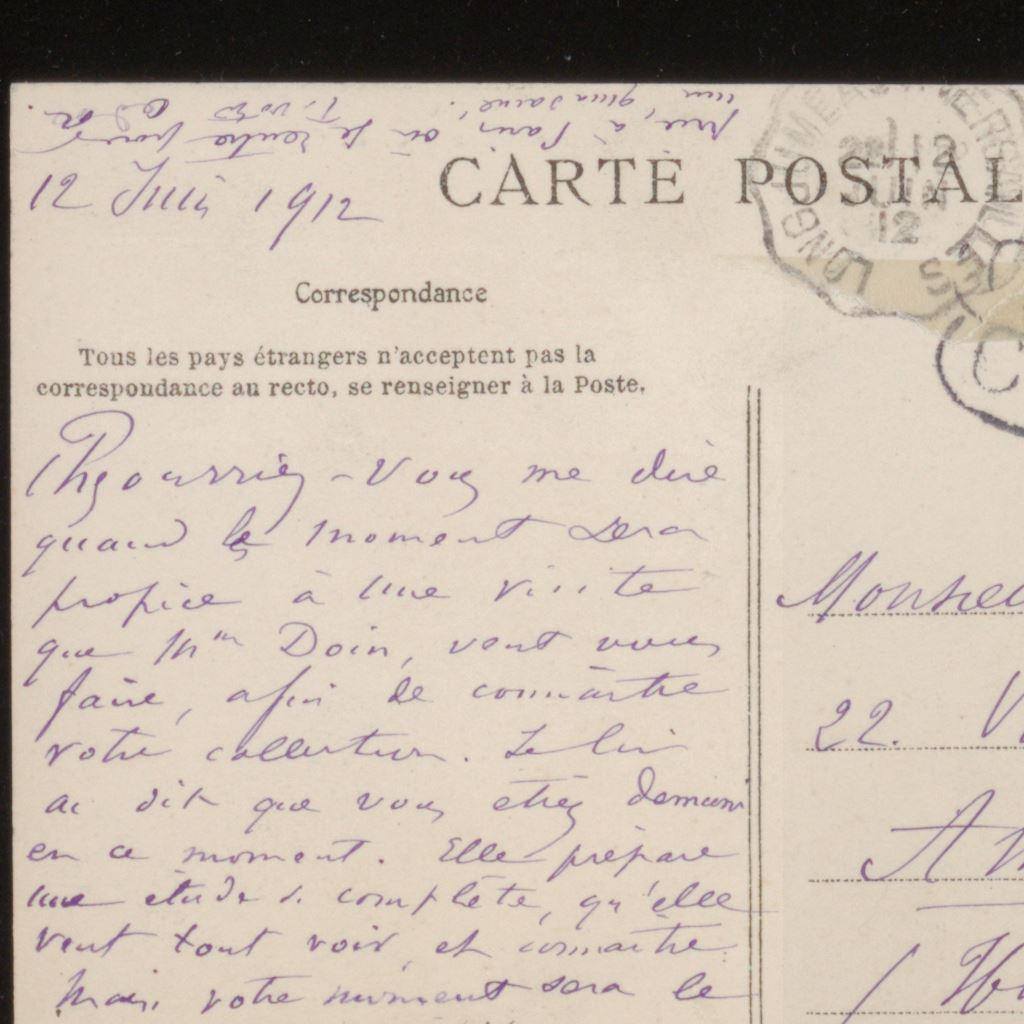 12 Juin 1912
CARTE POSTAL
LONGUMEAU
12
JUIN
12
Correspondance
Tous les pays étrangers n'acceptent pas la
correspondance au recto, se renseigner à la Poste.
-Vous me dire
quand le moment sera
propice à une visite
que Mme Doin, veut vous
faire, afin de connaître
votre collection. Je lui
ai dit que vous étiez
en ce moment. Elle prépare
une étude si complète, qu'elle
veut tout voir, et connaître.
Mais votre moment sera le
Monsieu
22. V
A